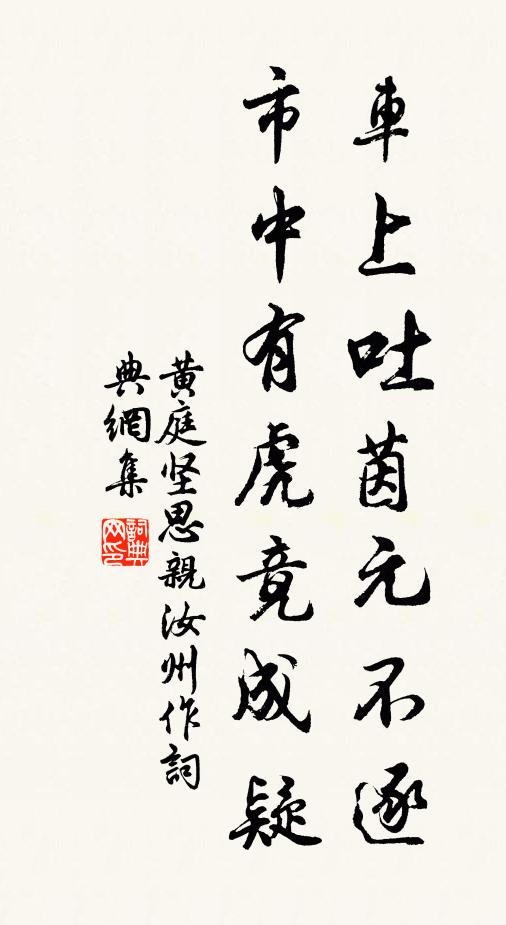 車上吐茵元不逐
市中有虎竟成疑
黄庭坚思親汝州作詞
典網集
詞典网印